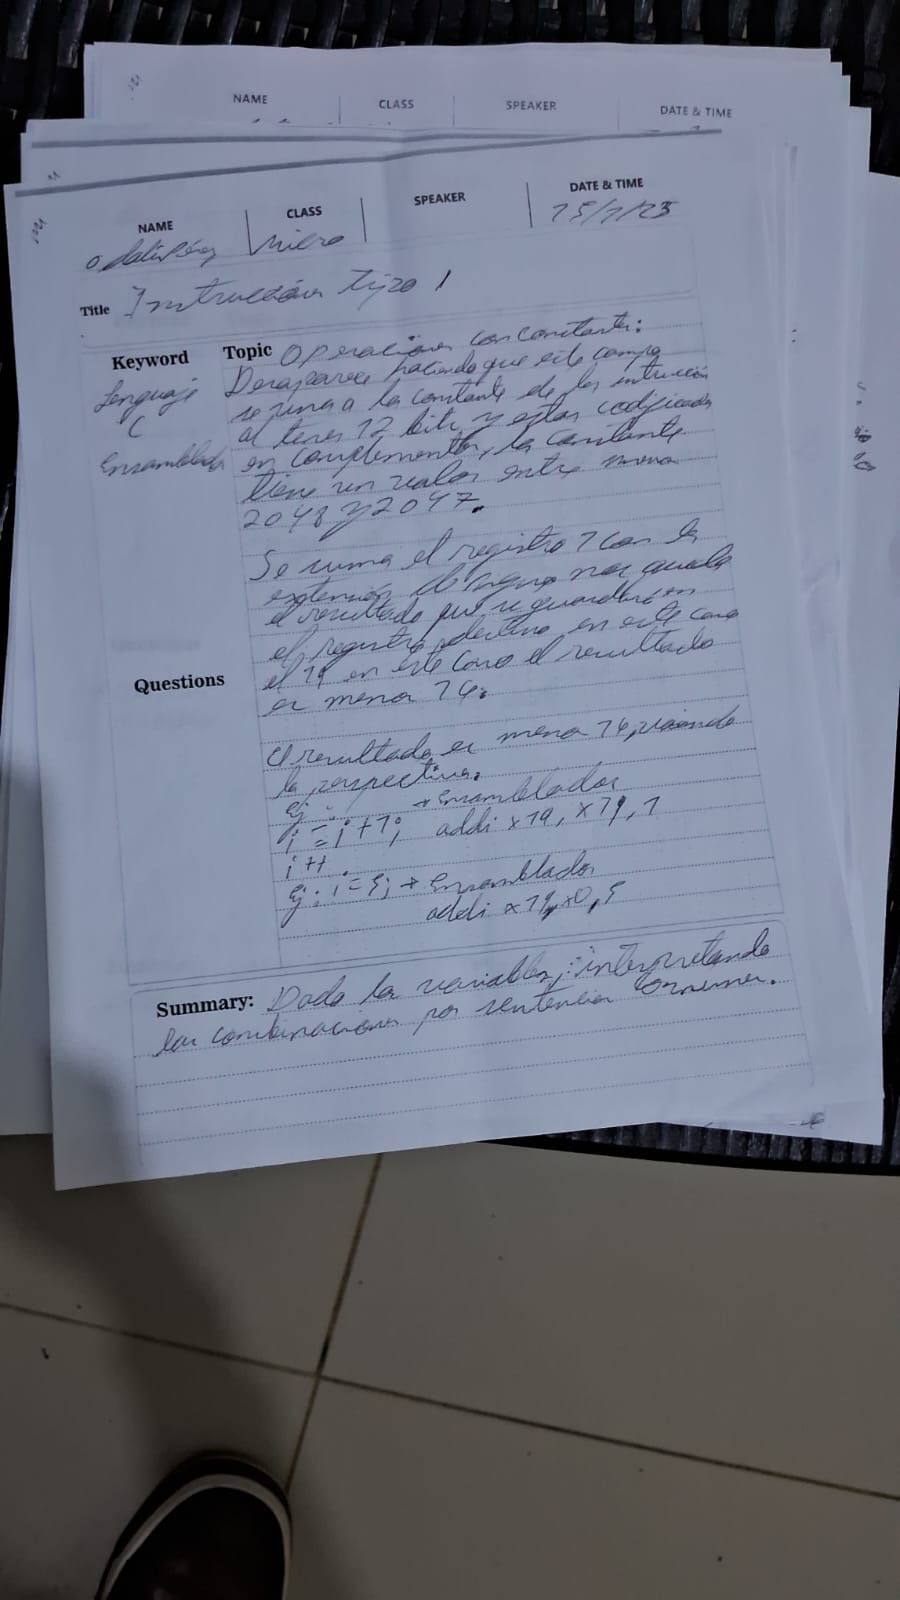 NAME CLASS SPEAKER DATE & TIME
NAME CLASS SPEAKER DATE & TIME
Micro 25/7/23
Title Instrucción tipo I
Keyword Topic Operaciones con constantes:
Lenguaje Desaparece haciendo que este campo
C se una a la constante de las
Ensamblador al tener 12 bits y estar codificada
en complemento, la constante
tiene un valor entre menos
2048 y 2047.
Se suma el registro 1 con la
extensión de signo nos queda
el resultado que se guardará en
el registro destino en este caso
Questions el 19 en este caso el resultado
es menos 14.
El resultado es menos 14, viendo
la perspectiva.
Ej: → Ensamblador
i = i + 1; addi x19, x19, 1
i++
Ej: i = 5; → Ensamblador
addi x19, x0, 5
Summary: Dado la variables, interpretando
las combinaciones por sentencias